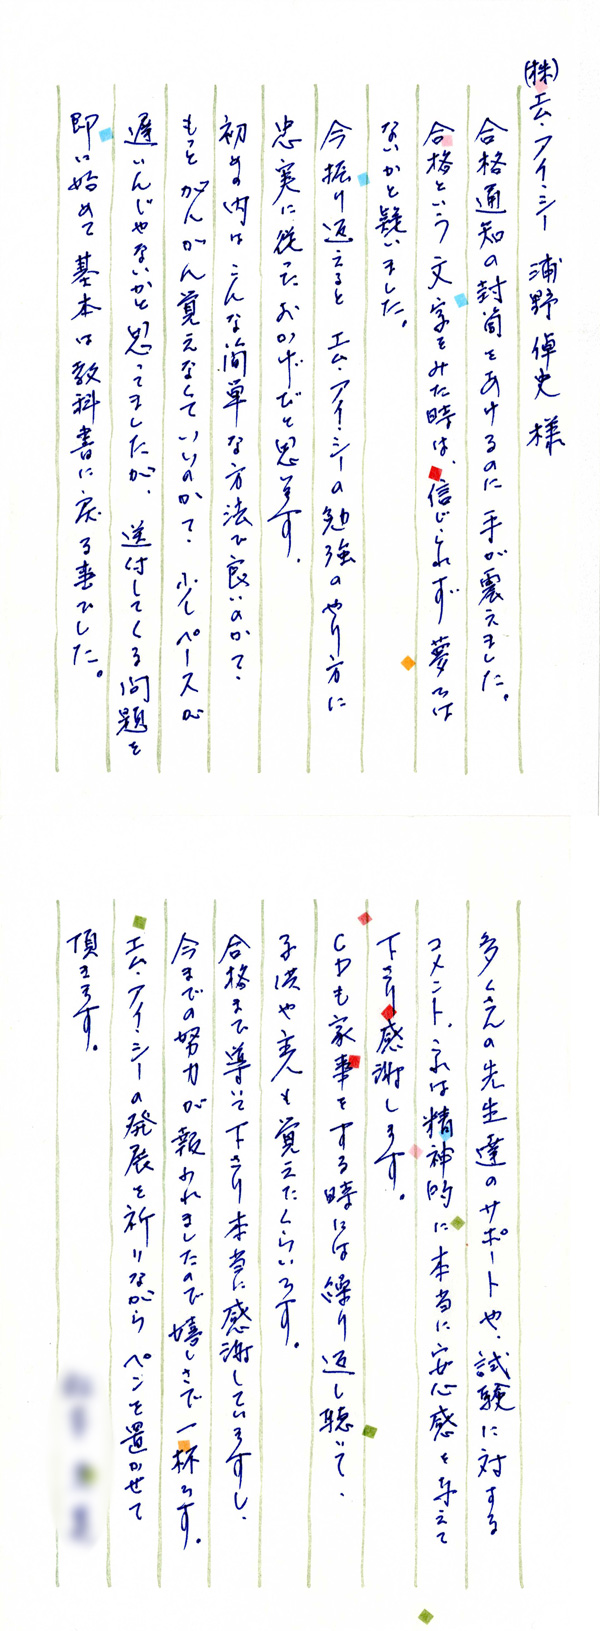 (株)エム・アイ・シー 浦野倬史様
合格通知の封筒をあけるのに手が震えました。
合格という文字をみた時は、信じられず夢では
ないかと疑いました。
今振り返えると エム・アイ・シーの勉強のやり方に
忠実に従ったおかげだと思います。
初めの内はこんな簡単な方法で良いのかて、
もっとがんがん覚えなくていいのかて、少しペースが
遅いんじゃないかと思ってましたが、送付してくる問題を
即に始めて基本は教科書に戻る事でした。
多くさんの先生達のサポートや、試験に対する
コメント、これは精神的に本当に安心感を与えて
下さり感謝します。
CDも家事をする時には繰り返し聴いて、
子供や主人も覚えたくらいです。
合格まで導いて下さり本当に感謝していますし、
今までの努力が報われましたので嬉しさで一杯です。
エム・アイ・シーの発展を祈りながら ペンを置かせて
頂きます。